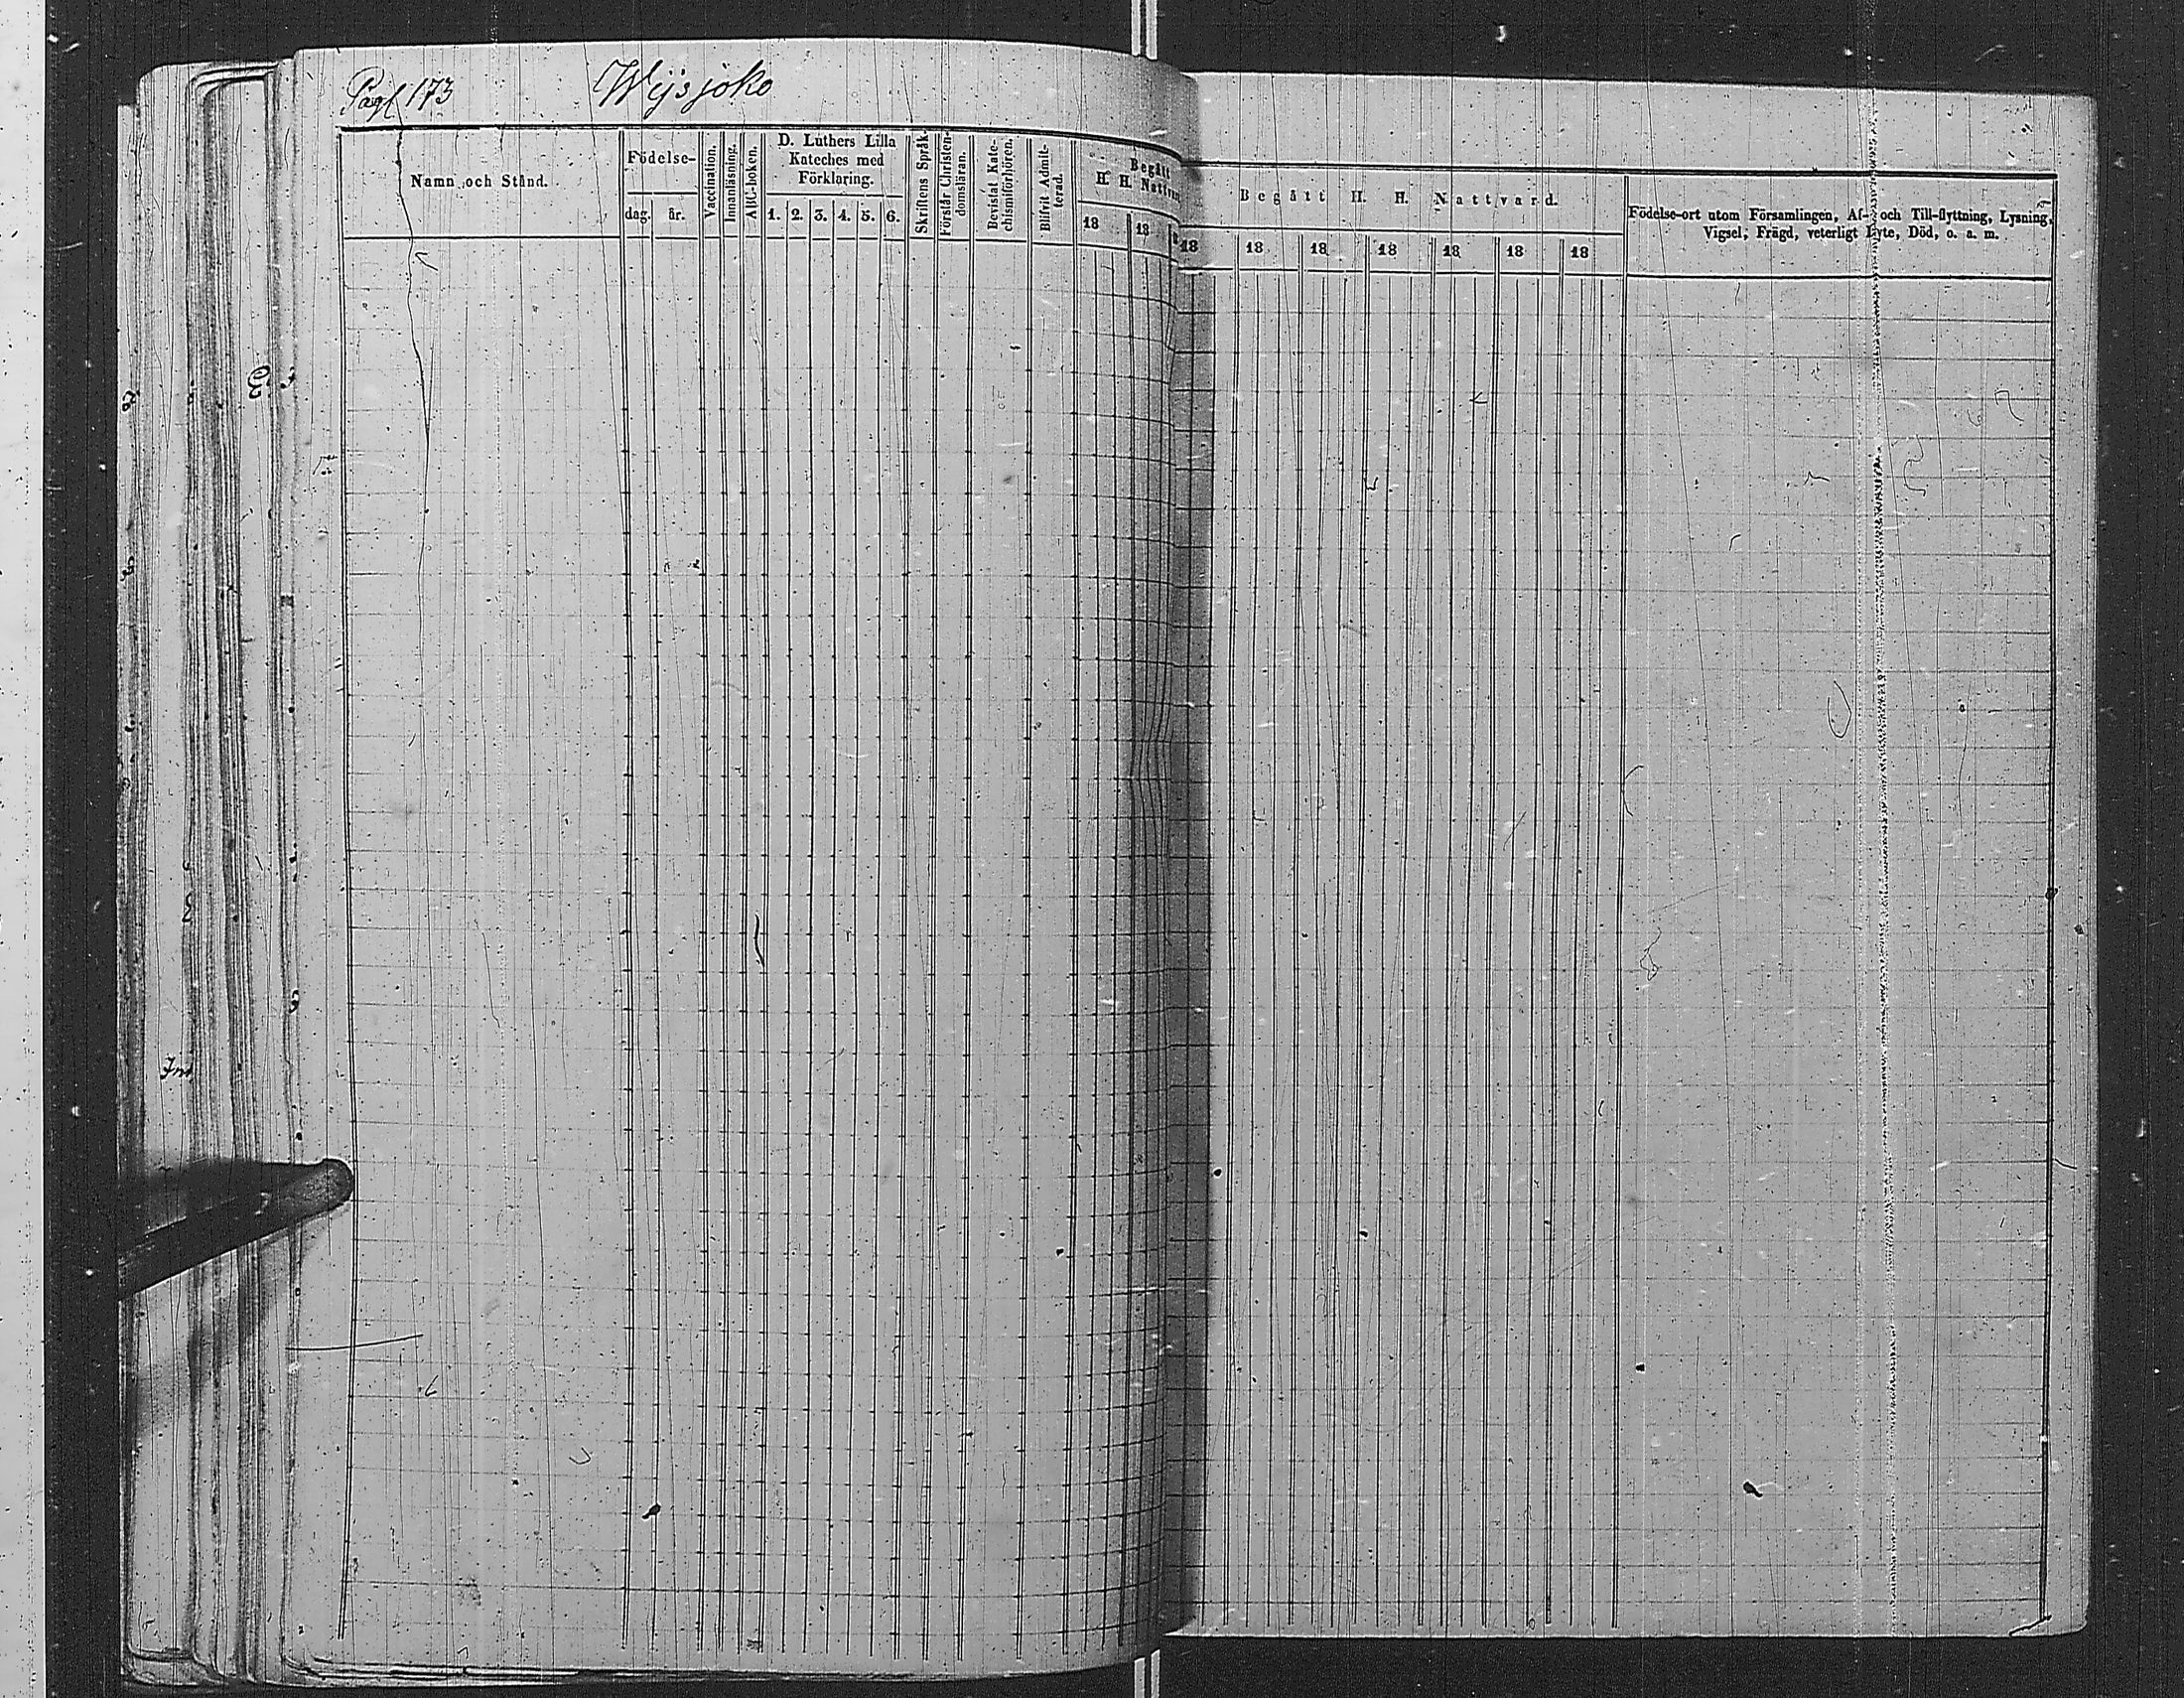 Pag 173 Wijsjoko
Namn och Stånd.
Födelse-
dag. år.
Vaccination.
Innanläsning.
ABC-boken.
D. Luthers Lilla
Kateches med
Förklaring.
1. 2. 3. 4. 5. 6.
Skriftens Språk.
Förstår Christen-
domsläran.
Bevistat Kate-
chismiförhören.
Blifvit Admit-
terad.
Begått
H. H. Nattvard
18 18
Begått H. H. Nattvard.
18 18 18 18 18 18 18
Födelse-ort utom Församlingen, Af- och Till-flyttning, Lysning,
Vigsel, Frägd, veterligt Lyte, Död, o. a. m.